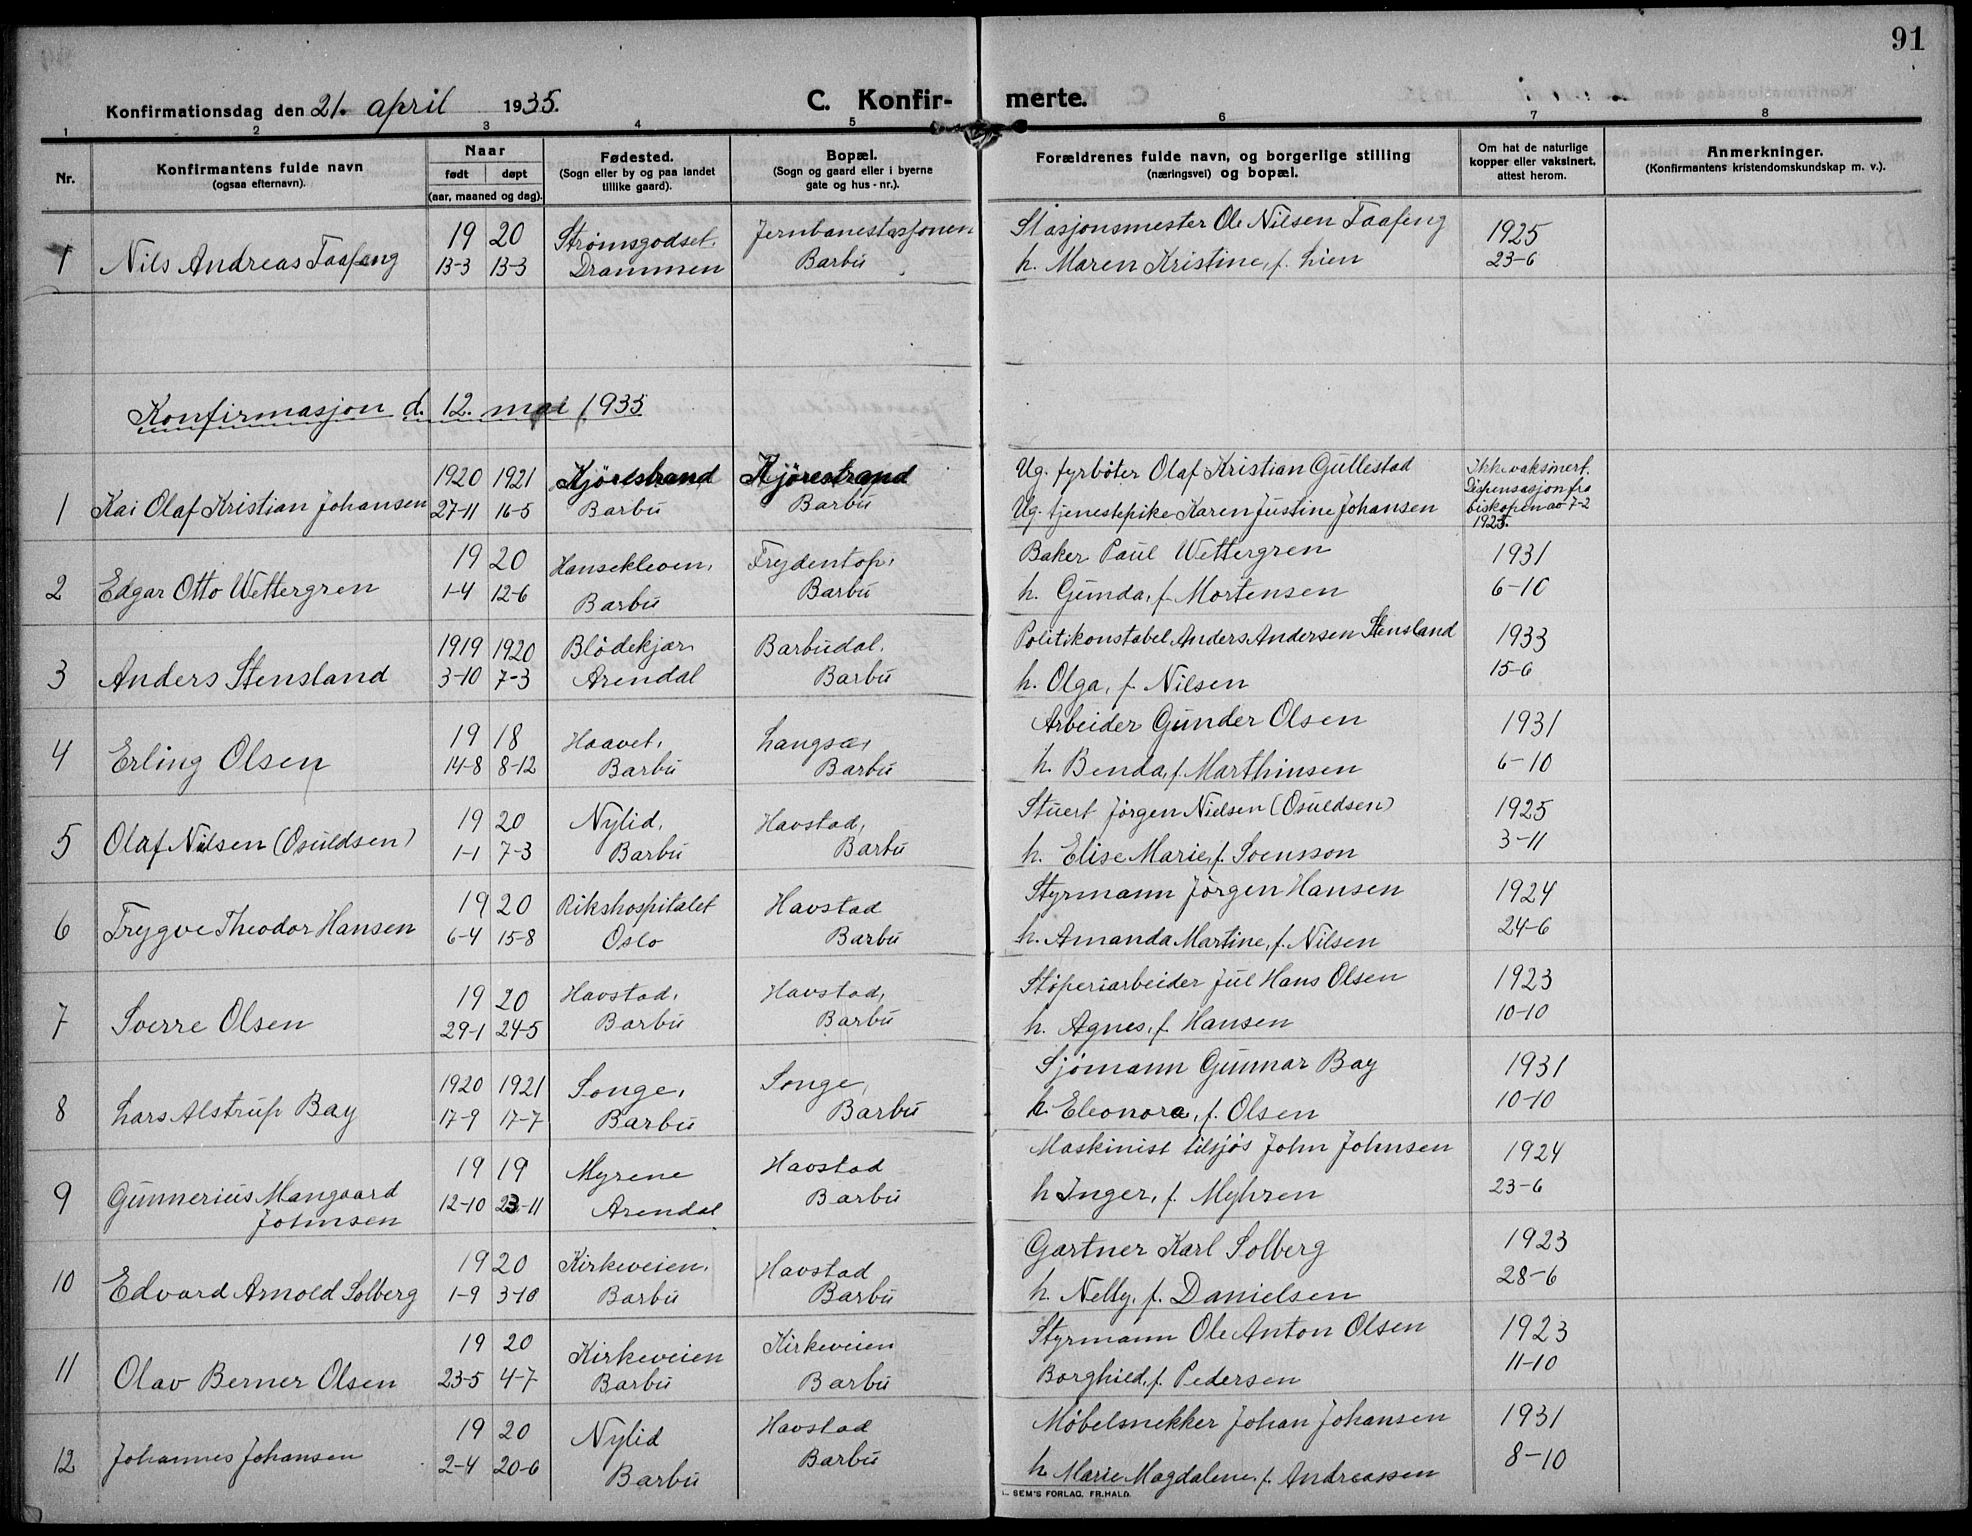 91
Konfirmationsdag den 21. april 1935. C. Konfirmerte.
1 2 3 4 5 6 7 8
Nr. Konfirmantens fulde navn (ogsaa efternavn). Naar født døpt (aar, maaned og dag). Fødested. (Sogn eller by og paa landet tillike gaard). Bopæl. (Sogn og gaard eller i byerne gate og hus-nr.). Forældrenes fulde navn, og borgerlige stilling (næringsvei) og bopæl. Om hat de naturlige kopper eller vaksinert, attest herom. Anmerkninger. (Konfirmantens kristendomskundskap m. v.).
19 20 Strømsgodset. Jernbanestasjonen Stasjonsmester Ole Nilsen Taafeng 1925
1 Nils Andreas Taafeng 13-3 13-3 Drammen Barbu h. Maren Kristine, f. Lien 23-6
Konfirmasjon d. 12. mai 1935
1920 1921 Kjörestrand Kjörestrand Ug. fyrbøter Olaf Kristian Gullestad Ikke vaksinert. Dispensasjon fra
1 Kai Olaf Kristian Johansen 27-11 16-5 Barbu Barbu Ug. tjenestepike Karen Justine Johansen biskopen av 7-2 1925.
19 20 Hansekleven, Frydentop, Baker Paul Wettergren 1931
2 Edgar Otto Wettergren 1-4 12-6 Barbu Barbu h. Gunda, f. Mortensen 6-10
1919 1920 Blödekjær Barbudal. Politikonstabel Anders Andersen Stensland 1933
3 Anders Stensland 3-10 7-3 Arendal Barbu h. Olga, f. Nilsen 15-6
19 18 Haavet, Langsæ, Arbeider Gunder Olsen 1931
4 Erling Olsen 14-8 8-12 Barbu Barbu h. Benda, f. Marthinsen 6-10
19 20 Nylid, Havstad, Stuert Jørgen Nielsen (Osuldsen) 1925
5 Olaf Nilsen (Osuldsen) 1-1 7-3 Barbu Barbu h. Elise Marie, f. Svensson 3-11
19 20 Rikshospitalet Havstad Styrmann Jørgen Hansen 1924
6 Trygve Theodor Hansen 6-4 15-8 Oslo Barbu h. Amanda Martine, f. Nilsen 24-6
19 20 Havstad, Havstad, Støperiarbeider Jul Hans Olsen 1923
7 Sverre Olsen 29-1 24-5 Barbu Barbu h. Agnes, f. Hansen 10-10
1920 1921 Songe, Songe, Sjömann Gunnar Bay 1931
8 Lars Alstrup Bay 17-9 17-7 Barbu Barbu h. Eleonora, f. Olsen 10-10
19 19 Myrene Havstad Maskinist tilsjøs John Johnsen 1924
9 Gunnerius Mangaard Johnsen 12-10 23-11 Arendal Barbu h Inger, f. Myhren 23-6
19 20 Kirkeveien. Havstad Gartner Karl Solberg 1923
10 Edvard Arnold Solberg 1-9 3-10 Barbu Barbu h. Nelly, f. Danielsen 28-6
19 20 Kirkeveien Kirkeveien Styrmann Ole Anton Olsen 1923
11 Olav Berner Olsen 23-5 4-7 Barbu Barbu Borghild, f. Pedersen 11-10
19 20 Nylid Havstad Møbelsnekker Johan Johansen 1931
12 Johannes Johansen 2-4 20-6 Barbu Barbu h. Marie Magdalene, f. Andreassen 8-10
SEM'S FORLAG, FR.HALD.